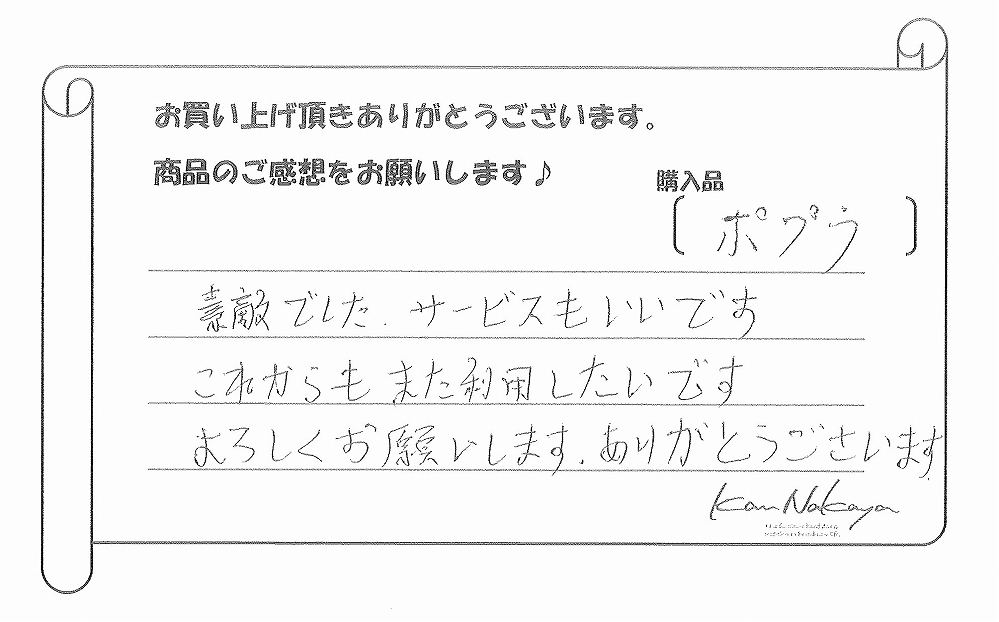 お買い上げ頂きありがとうございます。
商品のご感想をお願いします♪
購入品
〔 ポプラ 〕
素敵でした. サービスもいいです
これからもまた利用したいです
よろしくお願いします. ありがとうございます
Kan Nakaya